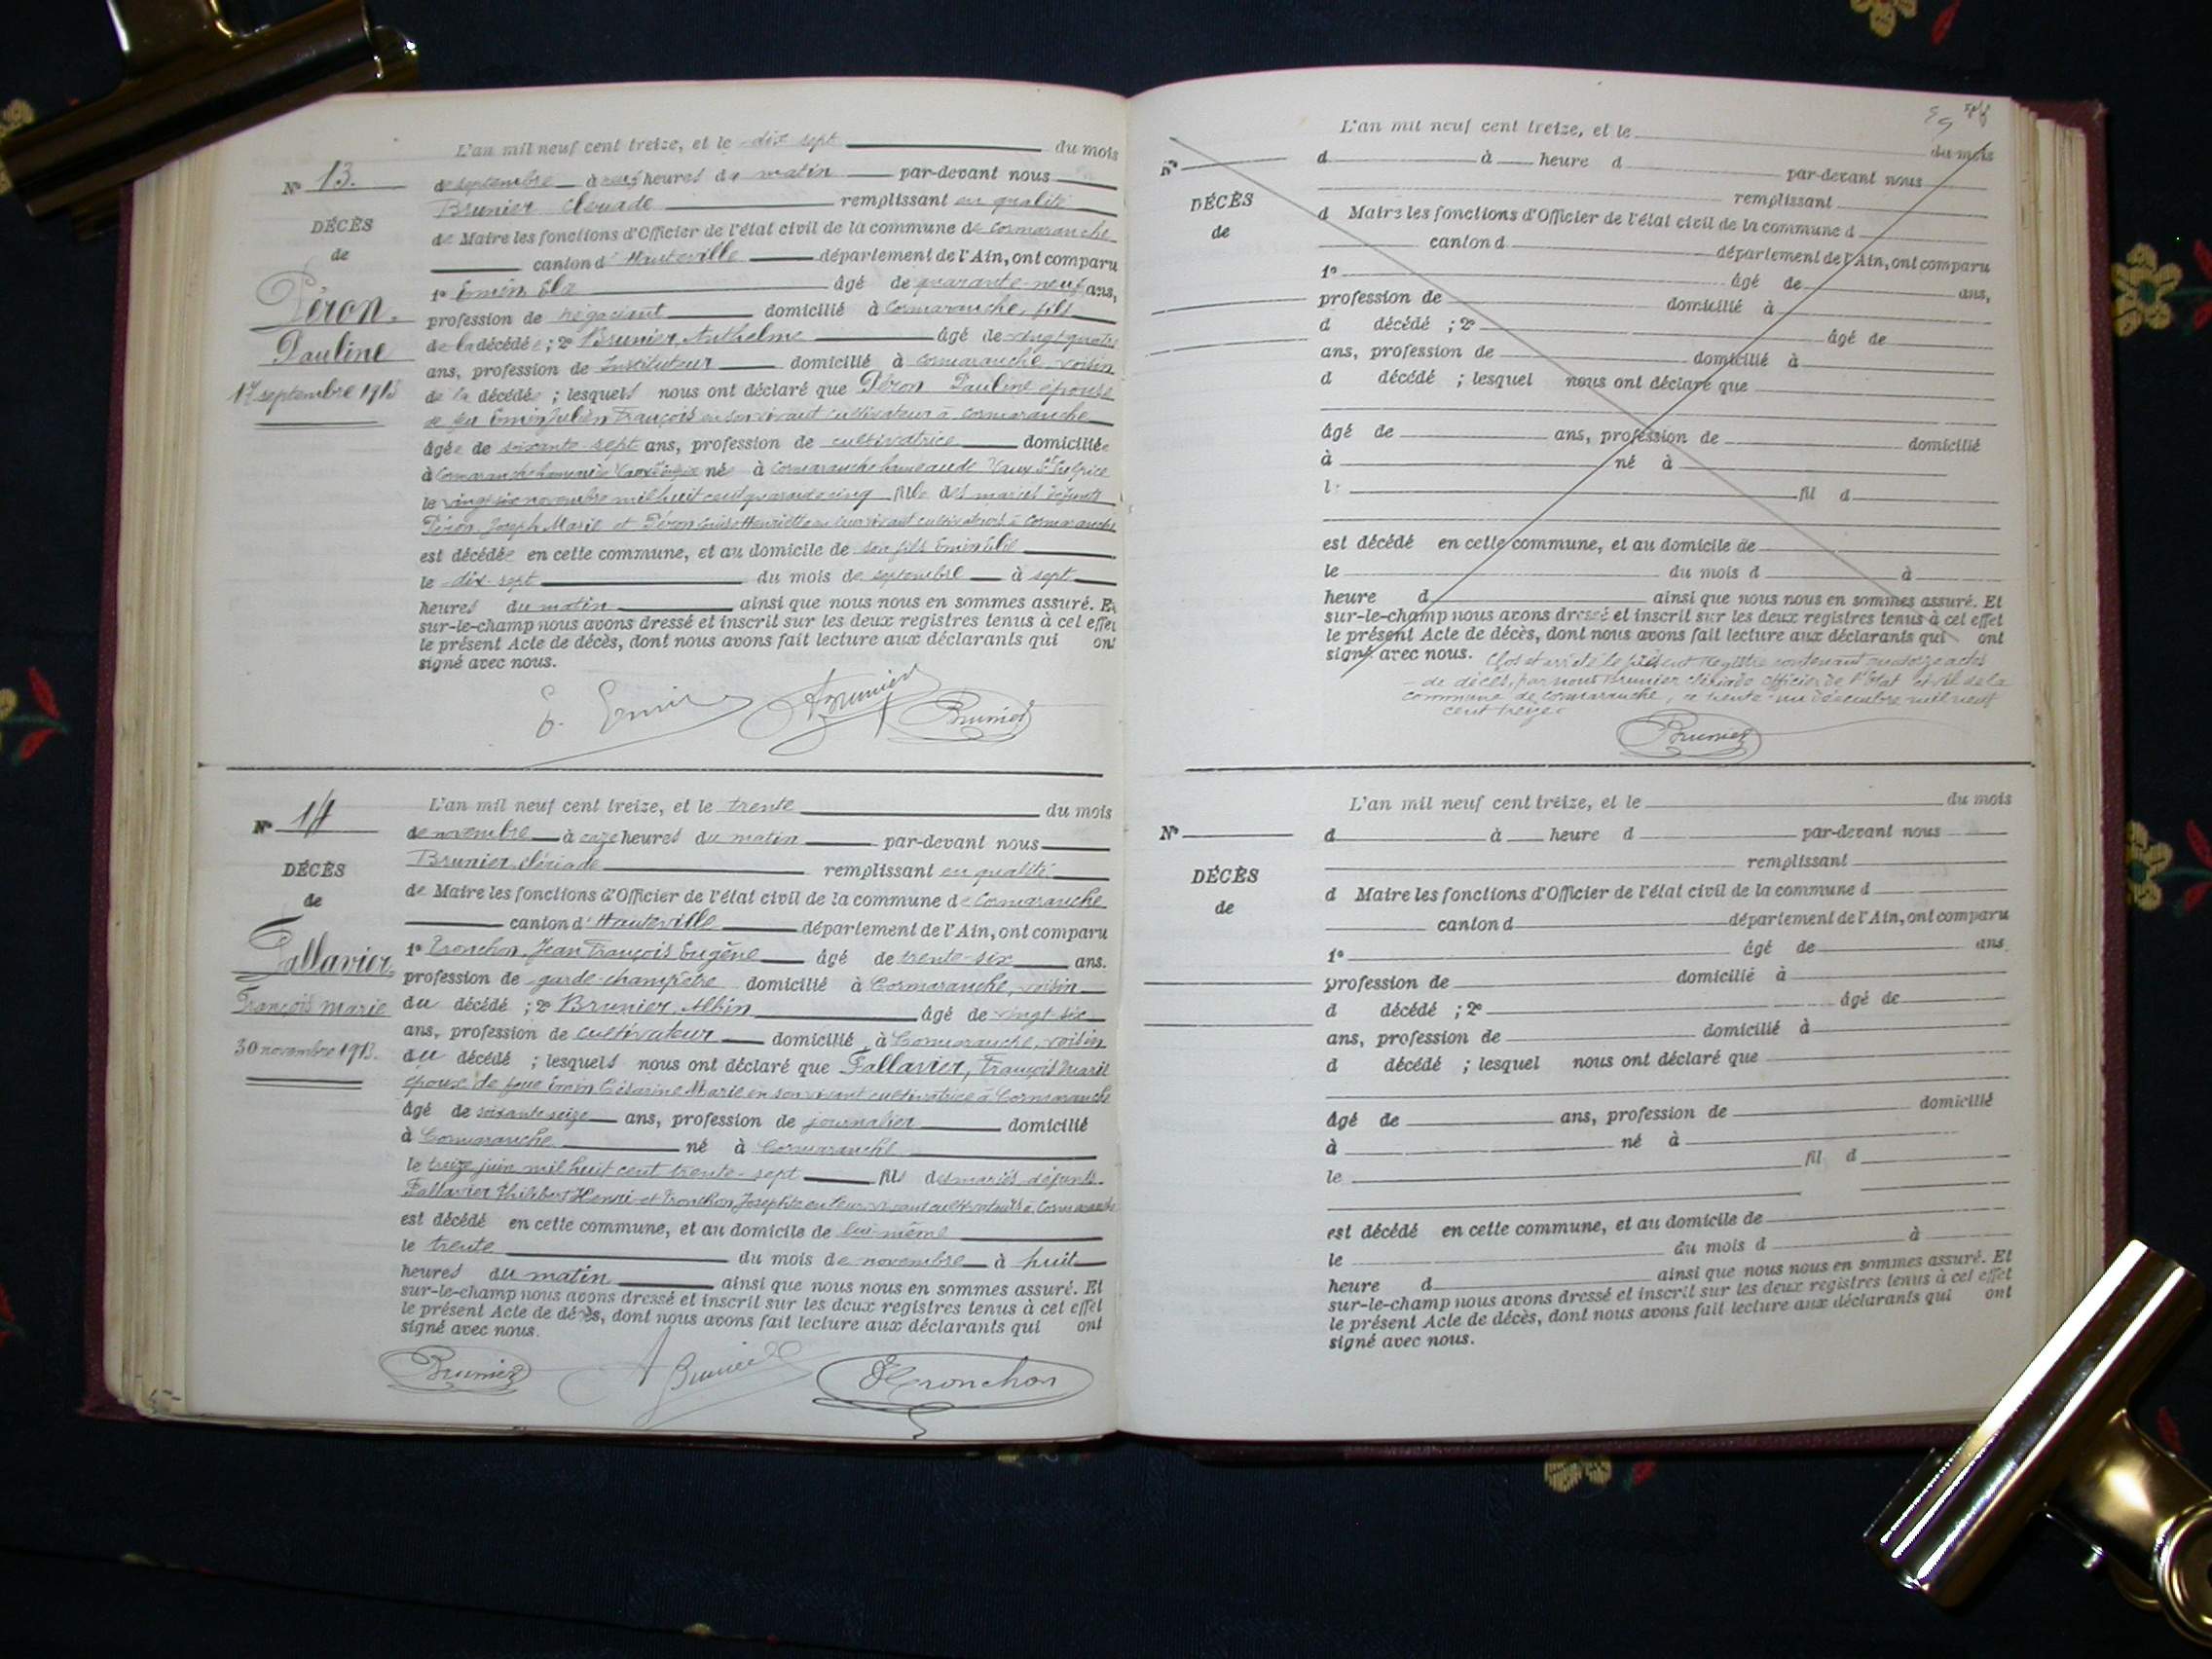 L'an mil neuf cent treize, et le dix sept du mois
N° 13. de septembre à neuf heures du matin par-devant nous
Brunier remplissant en qualité
DÉCÈS
de Maire les fonctions d'Officier de l'état civil de la commune de Cormaranche
de
canton d'Hauteville département de l'Ain, ont comparu
Péron
1° Emin âgé de quarante-neuf ans,
profession de négociant domicilié à Cormaranche, fils
Pauline
de la décédée ; 2° Brunier Anthelme âgé de vingt quatre
ans, profession de Instituteur domicilié à Cormaranche, voisin
17 septembre 1913
de la décédée ; lesquels nous ont déclaré que Péron Pauline épouse
de feu Emin Julien François en son vivant cultivateur à Cormaranche
âgée de soixante-sept ans, profession de cultivatrice domiciliée
à Cormaranche née à Cormaranche hameau de Vaux St Sulpice
le vingt six novembre mil huit cent quarante cinq fille des mariés défunts
Péron Joseph Marie et Péron Henriette en leur vivant cultivateurs à Cormaranche
est décédée en cette commune, et au domicile de son fils Emin
le dix-sept du mois de septembre à sept
heures du matin ainsi que nous nous en sommes assuré. Et
sur-le-champ nous avons dressé et inscrit sur les deux registres tenus à cel effet
le présent Acte de décès, dont nous avons fait lecture aux déclarants qui ont
signé avec nous.
E. Emin ABrunier Brunier
L'an mil neuf cent treize, et le trente du mois
N° 14 de novembre à onze heures du matin par-devant nous
Brunier remplissant en qualité
DÉCÈS
de Maire les fonctions d'Officier de l'état civil de la commune de Cormaranche
de
canton d'Hauteville département de l'Ain, ont comparu
Fallavier,
1° Tronchon, Jean François Eugène âgé de trente-six ans.
profession de garde-champêtre domicilié à Cormaranche, voisin
François Marie
du décédé ; 2° Brunier Albin âgé de vingt-six
ans, profession de cultivateur domicilié à Cormaranche, voisin
30 novembre 1913.
du décédé ; lesquels nous ont déclaré que Fallavier, François Marie
époux de feue Emin Césarine Marie en son vivant cultivatrice à Cormaranche
âgé de soixante seize ans, profession de journalier domicilié
à Cormaranche né à Cormaranche
le treize juin mil huit cent trente-sept fils des mariés défunts
Fallavier Philibert Henri et Tronchon en leur vivant cultivateurs à Cormaranche
est décédé en cette commune, et au domicile de lui-même
le trente du mois de novembre à huit
heures du matin ainsi que nous nous en sommes assuré. Et
sur-le-champ nous avons dressé et inscrit sur les deux registres tenus à cel effet
le présent Acte de décès, dont nous avons fait lecture aux déclarants qui ont
signé avec nous.
Brunier A Brunier Tronchon
L'an mil neuf cent treize, et le du mois
N° d à heure d par-devant nous
remplissant
DÉCÈS
d Maire les fonctions d'Officier de l'état civil de la commune d
de
canton d département de l'Ain, ont comparu
1° âgé de ans,
profession de domicilié à
d décédé ; 2° âgé de
ans, profession de domicilié à
d décédé ; lesquel nous ont déclaré que
âgé de ans, profession de domicilié
à né à
l: fil d
est décédé en cette commune, et au domicile de
le du mois d à
heure d ainsi que nous nous en sommes assuré. Et
sur-le-champ nous avons dressé et inscrit sur les deux registres tenus à cel effet
le présent Acte de décès, dont nous avons fait lecture aux déclarants qui ont
signé avec nous. Clos et arrêté le présent Registre contenant quatorze actes
de décès, par nous Brunier Officier de l'État civil de la
commune de Cormaranche, ce trente-un Décembre mil neuf
cent treize.
Brunier
L'an mil neuf cent treize, et le du mois
N° d à heure d par-devant nous
remplissant
DÉCÈS
d Maire les fonctions d'Officier de l'état civil de la commune d
de
canton d département de l'Ain, ont comparu
1° âgé de ans.
profession de domicilié à
d décédé ; 2° âgé de
ans, profession de domicilié à
d décédé ; lesquel nous ont déclaré que
âgé de ans, profession de domicilié
à né à
le fil d
est décédé en cette commune, et au domicile de
le du mois d à
heure d ainsi que nous nous en sommes assuré. Et
sur-le-champ nous avons dressé et inscrit sur les deux registres tenus à cel effet
le présent Acte de décès, dont nous avons fait lecture aux déclarants qui ont
signé avec nous.